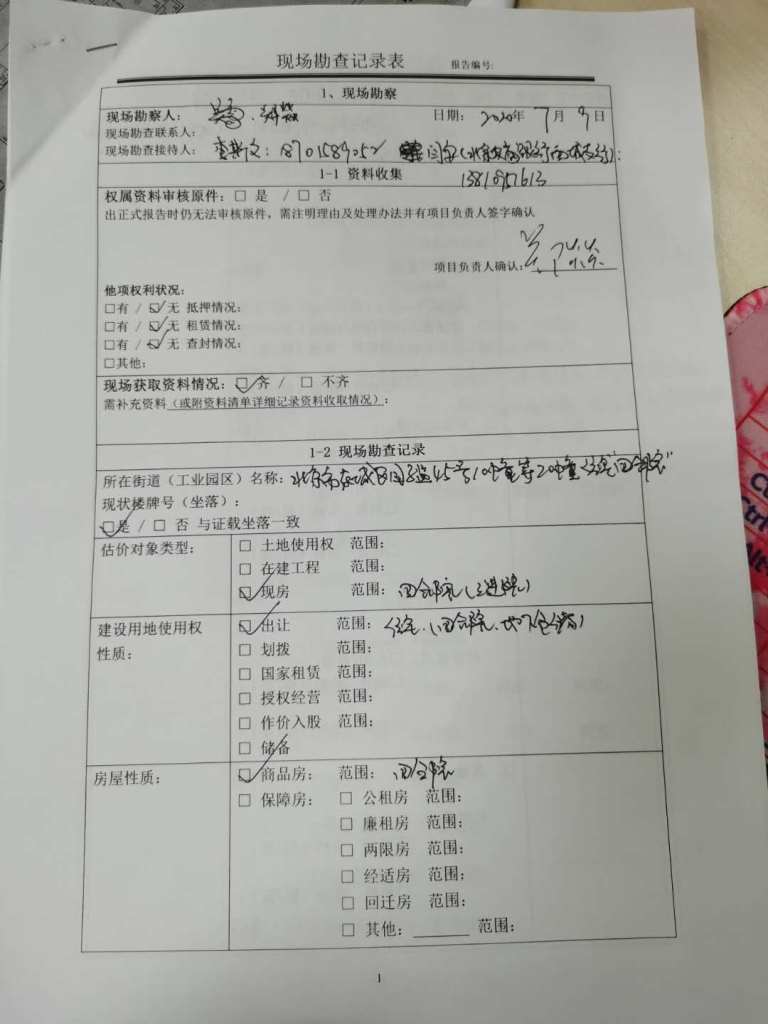 现场勘查记录表 报告编号:
1、现场勘察
现场勘察人: 日期: 2020年7月9日
现场勘查联系人:
现场勘查接待人: 18701589052
1-1 资料收集 13810951613
权属资料审核原件:□ 是 / □ 否
出正式报告时仍无法审核原件,需注明理由及处理办法并有项目负责人签字确认
项目负责人确认:
他项权利状况:
□有 / ☑无 抵押情况:
□有 / ☑无 租赁情况:
□有 / ☑无 查封情况:
□其他:
现场获取资料情况:☑齐 / □ 不齐
需补充资料(或附资料清单详细记录资料收取情况):
1-2 现场勘查记录
所在街道(工业园区)名称:北京市东城区国子监45号10幢等20幢住宅"四合院"
现状楼牌号(坐落):
☑是 / □ 否 与证载坐落一致
估价对象类型: □ 土地使用权 范围:
□ 在建工程 范围:
☑现房 范围: 四合院(三进院)
建设用地使用权性质: ☑出让 范围: 住宅、(四合院、地下仓储)
□ 划拨 范围:
□ 国家租赁 范围:
□ 授权经营 范围:
□ 作价入股 范围:
□ 储备
房屋性质: ☑商品房: 范围: 四合院
□ 保障房: □ 公租房 范围:
□ 廉租房 范围:
□ 两限房 范围:
□ 经适房 范围:
□ 回迁房 范围:
□ 其他:______ 范围:
1